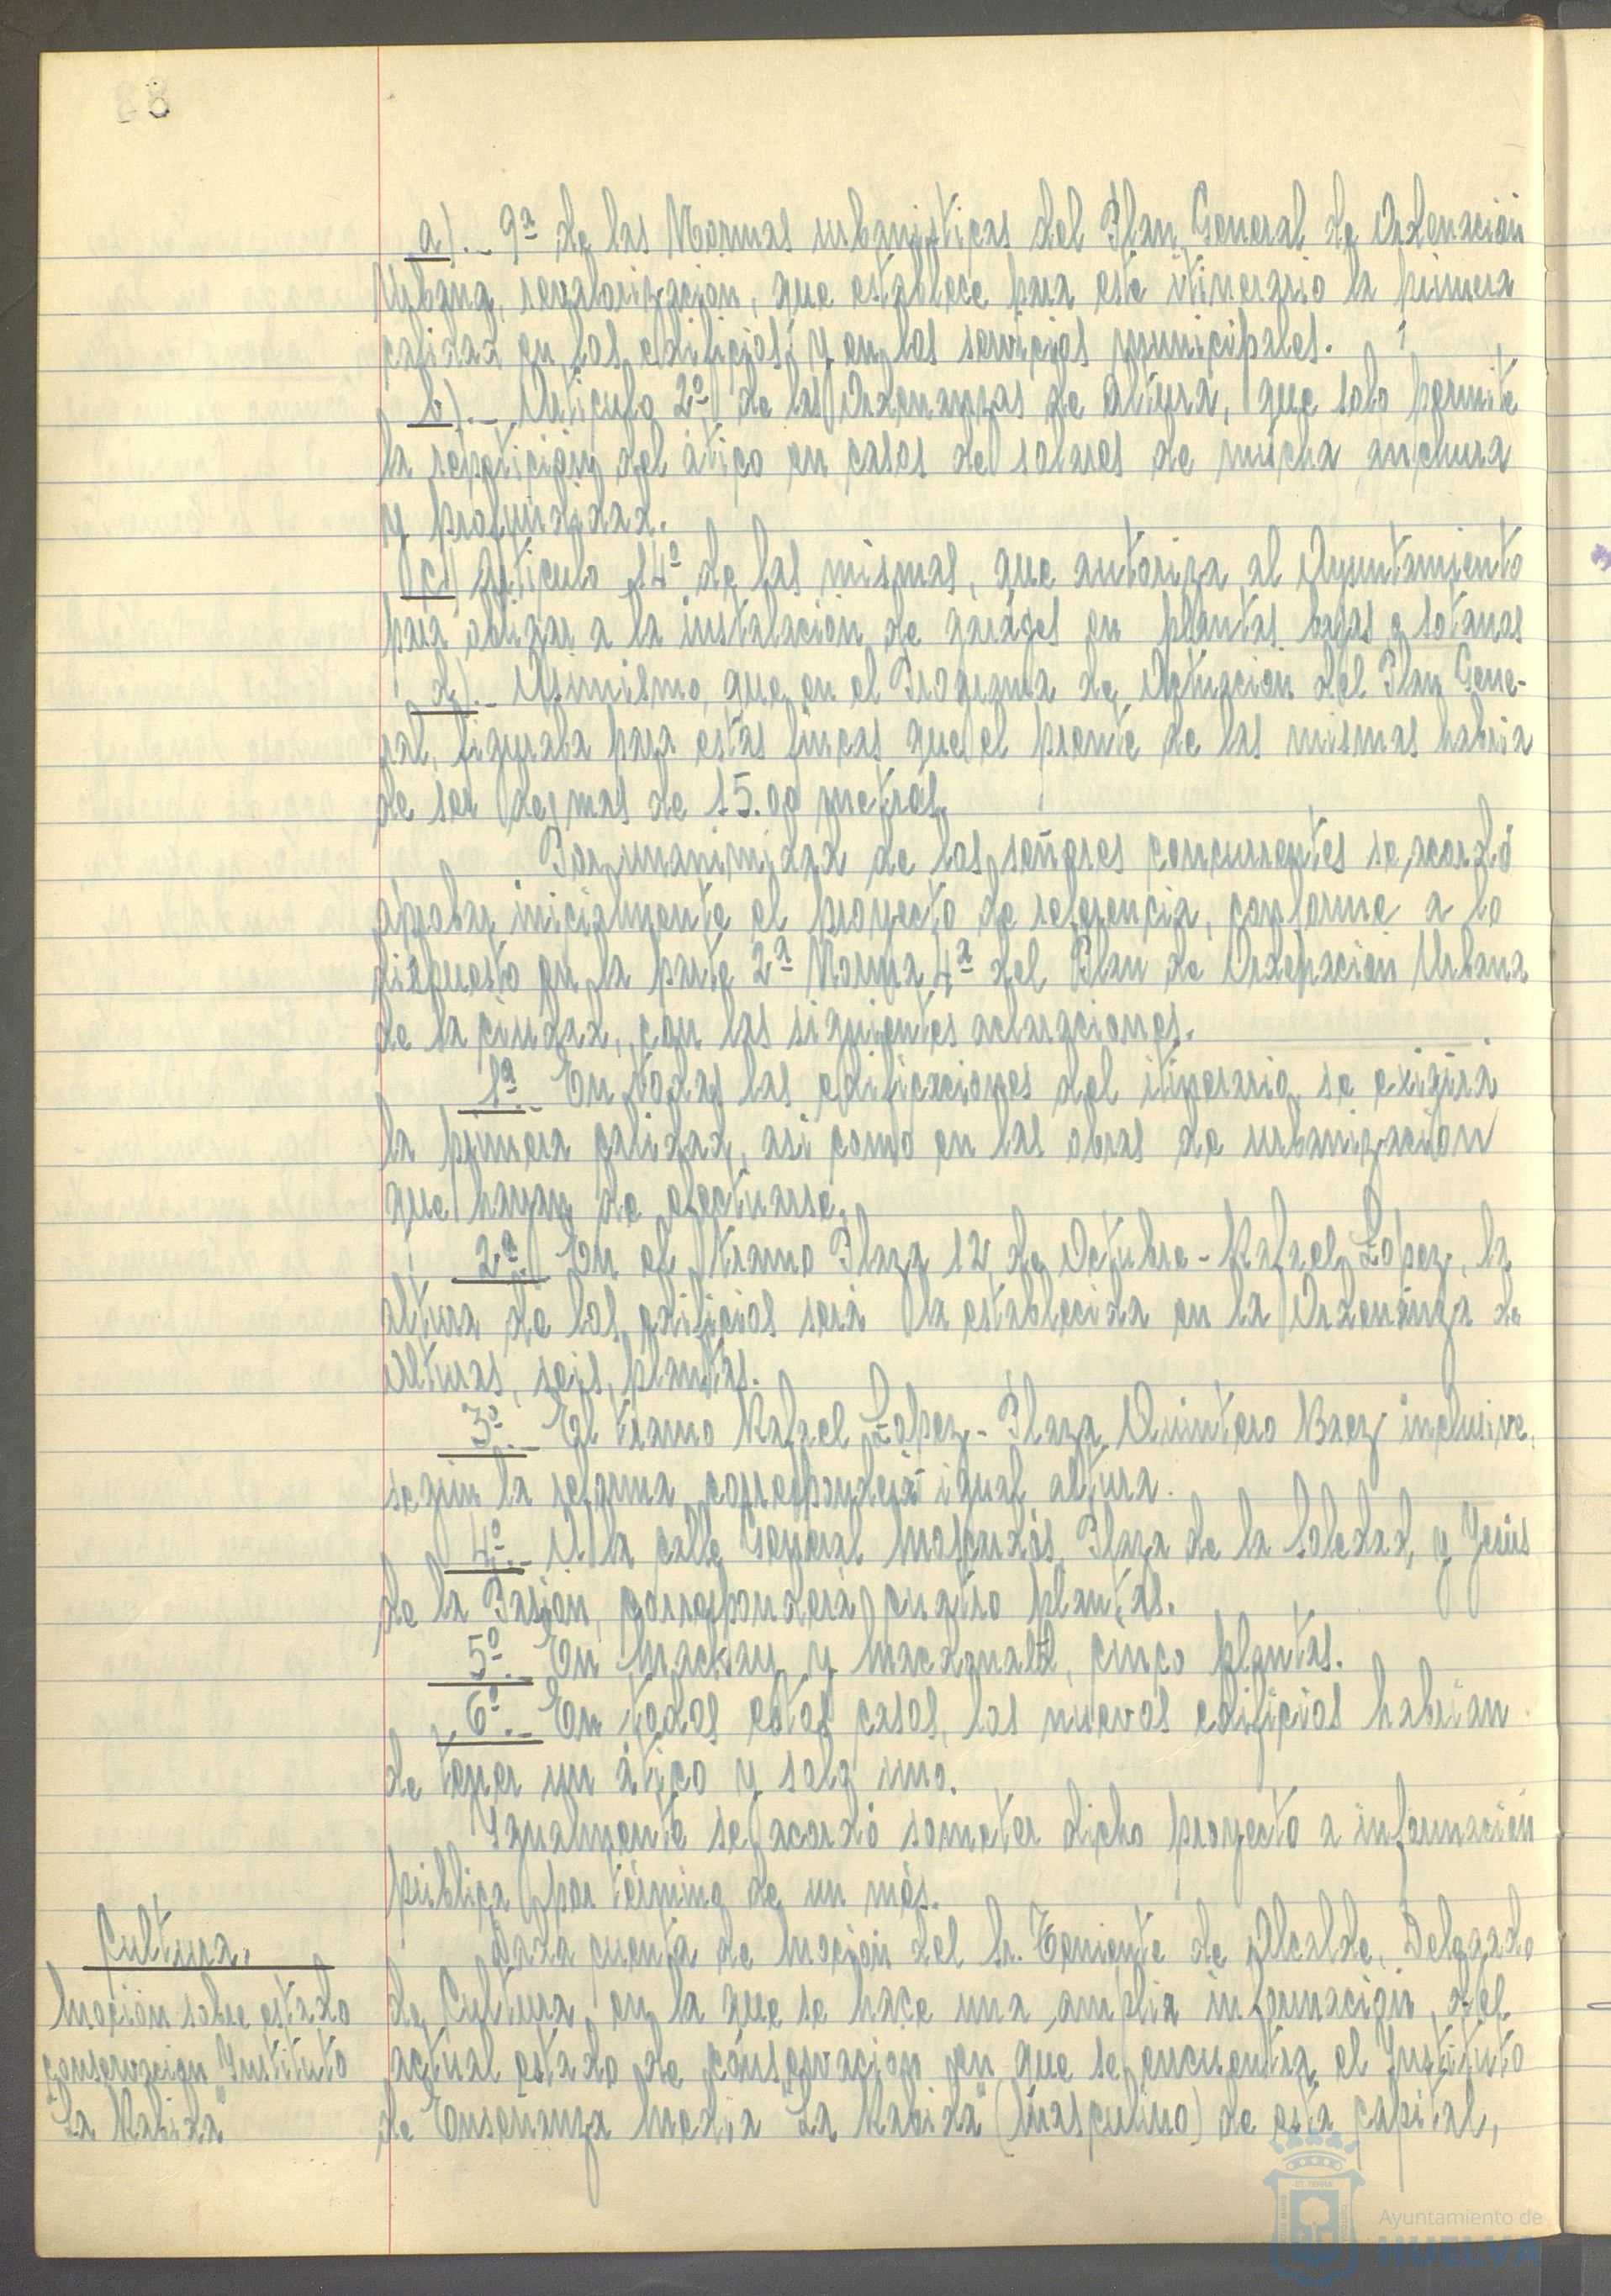 a).- 9ª de las Normas urbanisticas del Plan General de Ordenación
Urbana, revalorización, que establece para este itinerario la primera
calidad en los edificios, y en los servicios municipales.
b).- Articulo 2º de las Ordenanzas de altura, que solo permite
la repetición del ático en casos de solares de mucha anchura
y profundidad.
c) Artículo 14º de las mismas, que autoriza al Ayuntamiento
para obligar a la instalación de garages en plantas bajas o sotanos
d).- Asimismo, que en el Programa de Actuación del Plan Gene-
ral, figuraba para estas lineas que el frente de las mismas habria
de ser de mas de 15.00 metros.
Por unanimidad de los señores concurrentes se acordó
aprobar inicialmente el proyecto de referencia, conforme a lo
dispuesto en la parte 2ª Norma 4ª del Plan de Ordenación Urbana
de la ciudad, con las siguientes aclaraciones.
1ª.- En todas las edificaciones del itinerario se exigirá
la primera calidad, asi como en las obras de urbanización
que hayan de efectuarse.
2ª.- En el tramo Plaza 12 de Octubre - Rafael López, la
altura de los edificios será la establecida en la Ordenanza de
Alturas, seis plantas.
3º.- El tramo Rafael López - Plaza Quintero Baez inclusive,
según la reforma corresponderá igual altura.
4º.- A la calle General Moscardós, Plaza de la Soledad, y Jesús
de la Pasión, corresponderá cuatro plantas.
5º.- En Mackay y Macdonald, cinco plantas.
6º.- En todos estos casos, los nuevos edificios habrian
de tener un ático y solo uno.
Igualmente se acordó someter dicho proyecto a información
pública por término de un més.
Cultura.
Moción sobre estado
conservación Instituto
"La Rabida"
Dada cuenta de moción del Sr. Teniente de Alcalde, Delegado
de Cultura, en la que se hace una amplia información, del
actual estado de conservación en que se encuentra el Instituto
de Enseñanza Media "La Rabida" (Masculino) de esta capital,
Ayuntamiento de
HUELVA